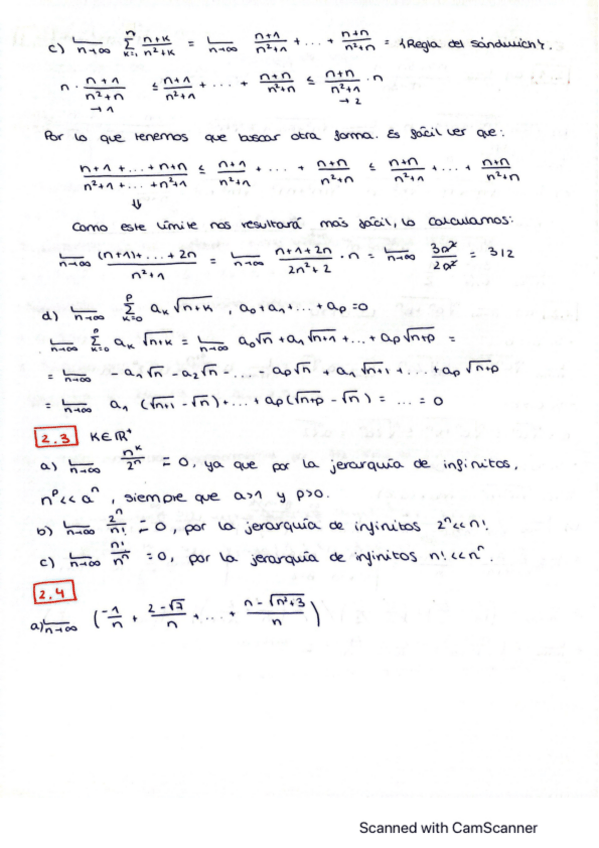 c) lim n→∞ Σ k=1 n (n+k)/(n²+k) = lim n→∞ (n+1)/(n²+1) + ... + (n+n)/(n²+n) = {Regla del sándwich}.
n · (n+1)/(n²+n) →1 ≤ (n+1)/(n²+1) + ... + (n+n)/(n²+n) ≤ (n+n)/(n²+1) →2 · n
Por lo que tenemos que buscar otra forma. Es fácil ver que:
(n+1 + ... + n+n)/(n²+1 + ... + n²+1) ≤ (n+1)/(n²+1) + ... + (n+n)/(n²+n) ≤ (n+n)/(n²+1) + ... + (n+n)/(n²+n)
⇓
Como este límite nos resultará más fácil, lo calculamos:
lim n→∞ ((n+1)+...+2n)/(n²+1) = lim n→∞ (n+1+2n)/(2n²+2) · n = lim n→∞ 3n²/2n² = 3/2
d) lim n→∞ Σ k=0 p aₖ√(n+k), a₀+a₁+...+aₚ=0
lim n→∞ Σ k=0 p aₖ√(n+k) = lim n→∞ a₀√n + a₁√(n+1) + ... + aₚ√(n+p) =
= lim n→∞ -a₁√n - a₂√n - ... - aₚ√n + a₁√(n+1) + ... + aₚ√(n+p)
= lim n→∞ a₁(√(n+1) - √n) + ... + aₚ(√(n+p) - √n) = ... = 0
2.3 K∈ℝ⁺
a) lim n→∞ nᵏ/2ⁿ = 0, ya que por la jerarquía de infinitos,
nᵖ<<aⁿ, siempre que a>1 y p>0.
b) lim n→∞ 2ⁿ/n! = 0, por la jerarquía de infinitos 2ⁿ<<n!
c) lim n→∞ n!/nⁿ = 0, por la jerarquía de infinitos n!<<nⁿ
2.4
a) lim n→∞ (-1/n + (2-√7)/n + ... + (n-√(n²+3))/n)
Scanned with CamScanner